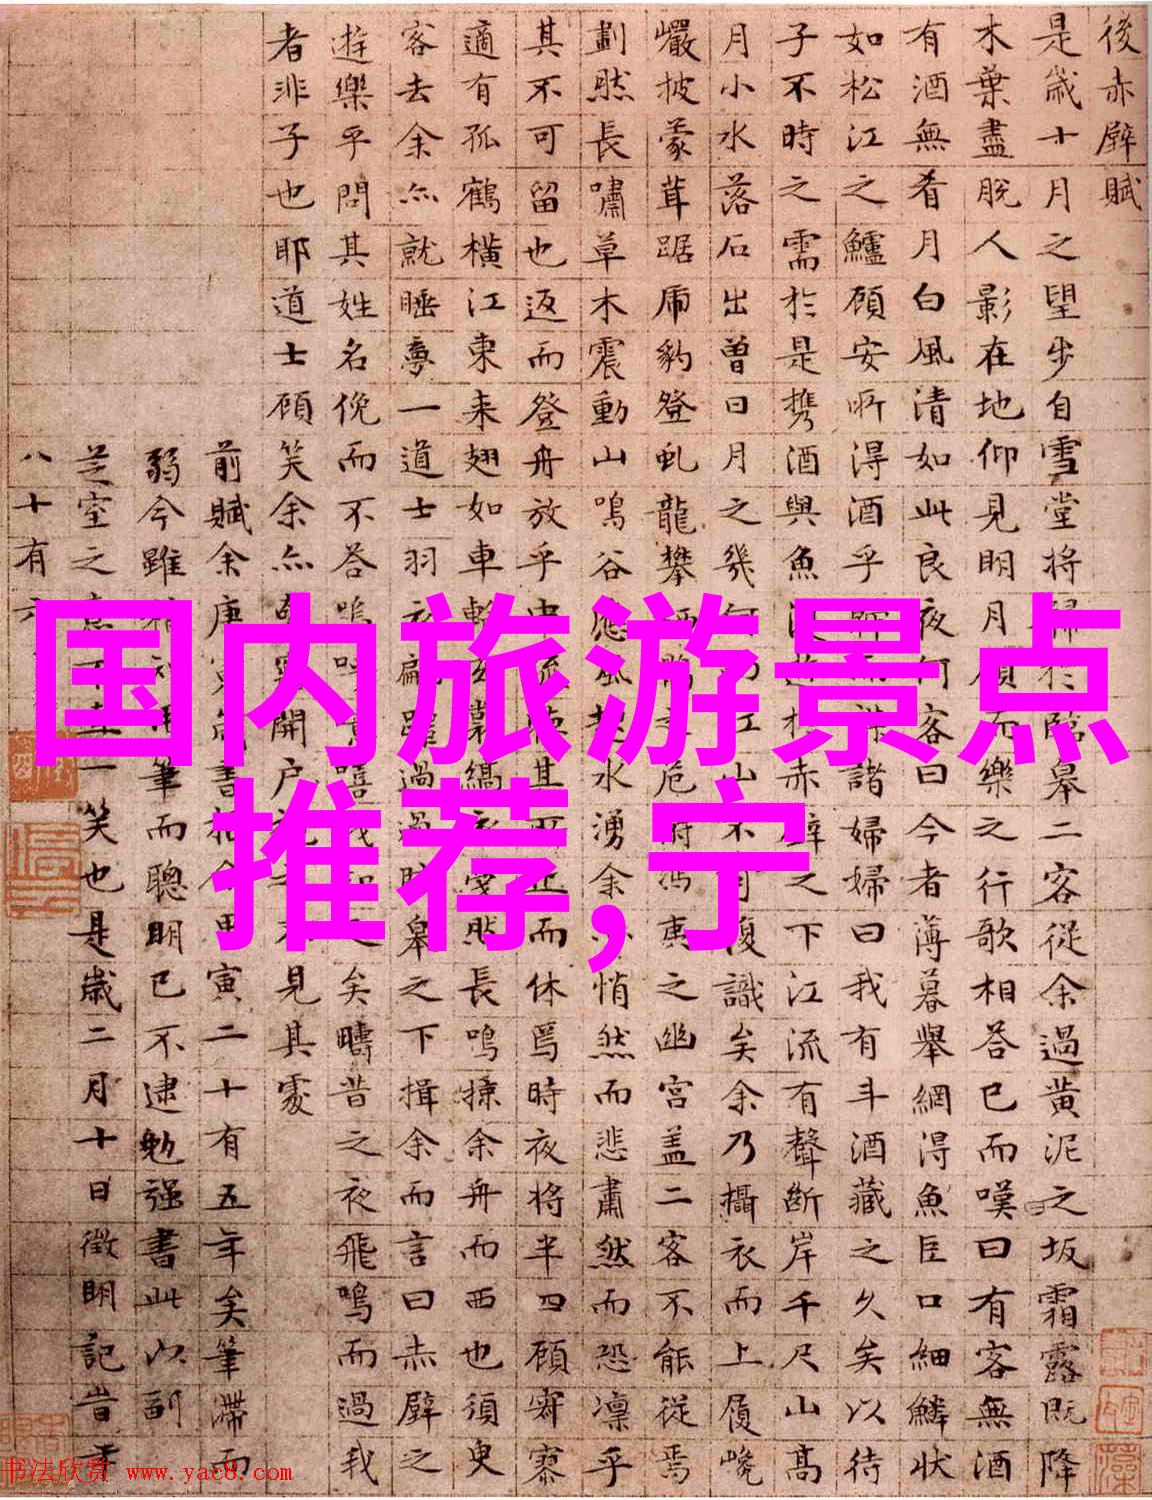 後赤壁賦
是歲十月之望步自雪堂將歸於臨皋二客從余過黄泥之坂霜露既降
木葉盡脱人影在地仰見明月顧而樂之行歌相答已而嘆曰有客無酒
有酒無肴月白風清如此良夜何客曰今者薄暮舉網得魚巨口細鱗狀
如松江之鱸顧安所得酒乎歸而謀諸婦婦曰我有斗酒藏之久矣以待
子不時之需於是携酒與魚復遊於赤壁之下江流有聲斷岸千尺山高
月小水落石出曾日月之幾何而江山不可復識矣余乃攝衣而上履巉
巖披蒙茸踞虎豹登虬龍攀栖鶻之危俯馮夷之幽宮盖二客不能從焉
劃然長嘯草木震動山鳴谷應風起水湧余亦悄然而悲肅然而恐凛乎
其不可留也返而登舟放乎中流聽其所止而休焉時夜將半四顧寂寥
適有孤鶴橫江東来翅如車輪玄裳縞衣戛然長鳴掠余舟而西也須臾
客去余亦就睡夢一道士羽衣蹁躚過臨皋之下揖余而言曰赤壁之
遊樂乎問其姓名俛而不答嗚呼噫嘻我知之矣疇昔之夜飛鳴而過我
者非子也耶道士顧笑余亦驚寤開户視之不見其處
前賦余庚寅歲書寅二十有五年矣筆滯而
弱今雖筆而聰明已不逮勉强書此以副
芝室之一笑也是歲二月十日徵明記昔年
八十有六
国内旅游景点
推荐,宁
书法欣赏 www.yac8.com